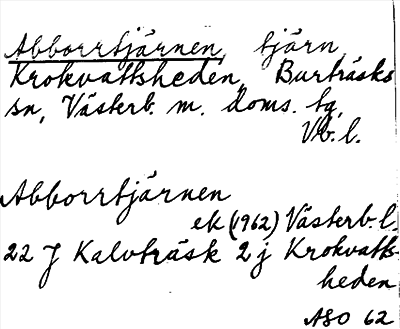 Abborrtjärnen, tjärn,
Krokvattsheden, Burträsks
sn, Västerb. m. doms. tg,
Vb. l.
Abborrtjärnen
ek (1962) Västerb. l.
22 J Kalvträsk 2 j Krokvatts-
heden
ASO 62